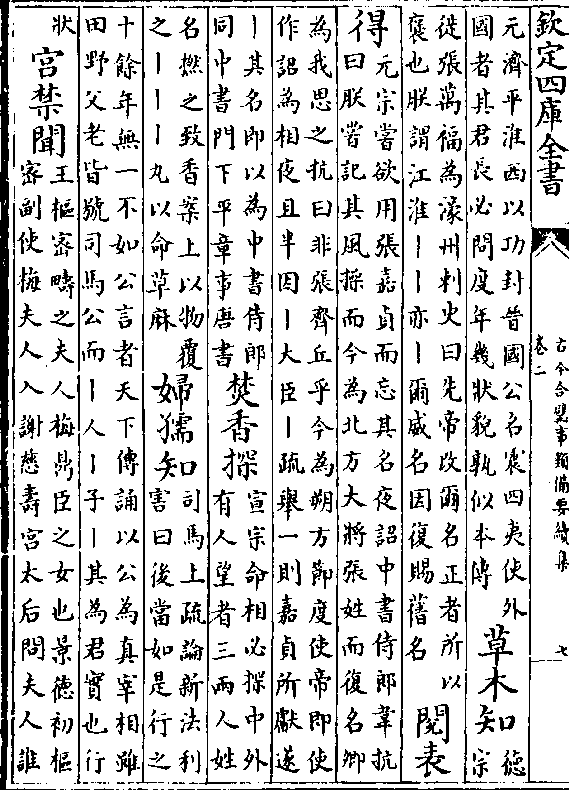 欽定四庫全書
古今合璧事類備要續集
卷二
七
元濟平淮西以功封晉國公名震四夷使外
國者其君長必問度年幾狀貌孰似本傳
草木知
德
宗
從張萬福為濠州刺史曰先帝改爾名正者所以
褒也朕謂江淮丨丨亦丨爾威名因復賜舊名
閱表
得
元宗嘗欲用張嘉貞而忘其名夜詔中書侍郎韋抗
曰朕嘗記其風操而今為北方大將張姓而復名卿
為我思之抗曰非張齊丘乎今為朔方節度使帝即使
作詔為相夜且半因丨大臣丨疏舉一則嘉貞所獻遂
丨其名即以為中書侍郎
同中書門下平章事唐書
焚香探
宣宗命相必探中外
有人望者三兩人姓
名撚之致香案上以物覆
之丨丨丨丸以命草麻
婦孺知
司馬上疏論新法利
害曰後當如是行之
十餘年無一不如公言者天下傳誦以公為真宰相雖
田野父老皆號司馬公而丨人丨子丨其為君實也行
狀
宫禁聞
王樞密疇之夫人梅鼎臣之女也景德初樞
密副使梅夫人入謝慈壽宫太后問夫人誰